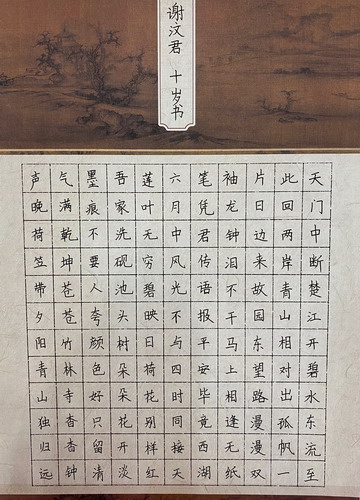 谢汶君 十岁书
天门中断楚江开碧水东流至
此回两岸青山相对出孤帆一
片日边来故园东望路漫漫双
袖龙钟泪不干马上相逢无纸
笔凭君传语报平安毕竟西湖
六月中风光不与四时同接天
莲叶无穷碧映日荷花别样红
吾家洗砚池头树朵朵花开淡
墨痕不要人夸颜色好只留清
气满乾坤苍苍竹林寺杳杳钟
声晚荷笠带夕阳青山独归远